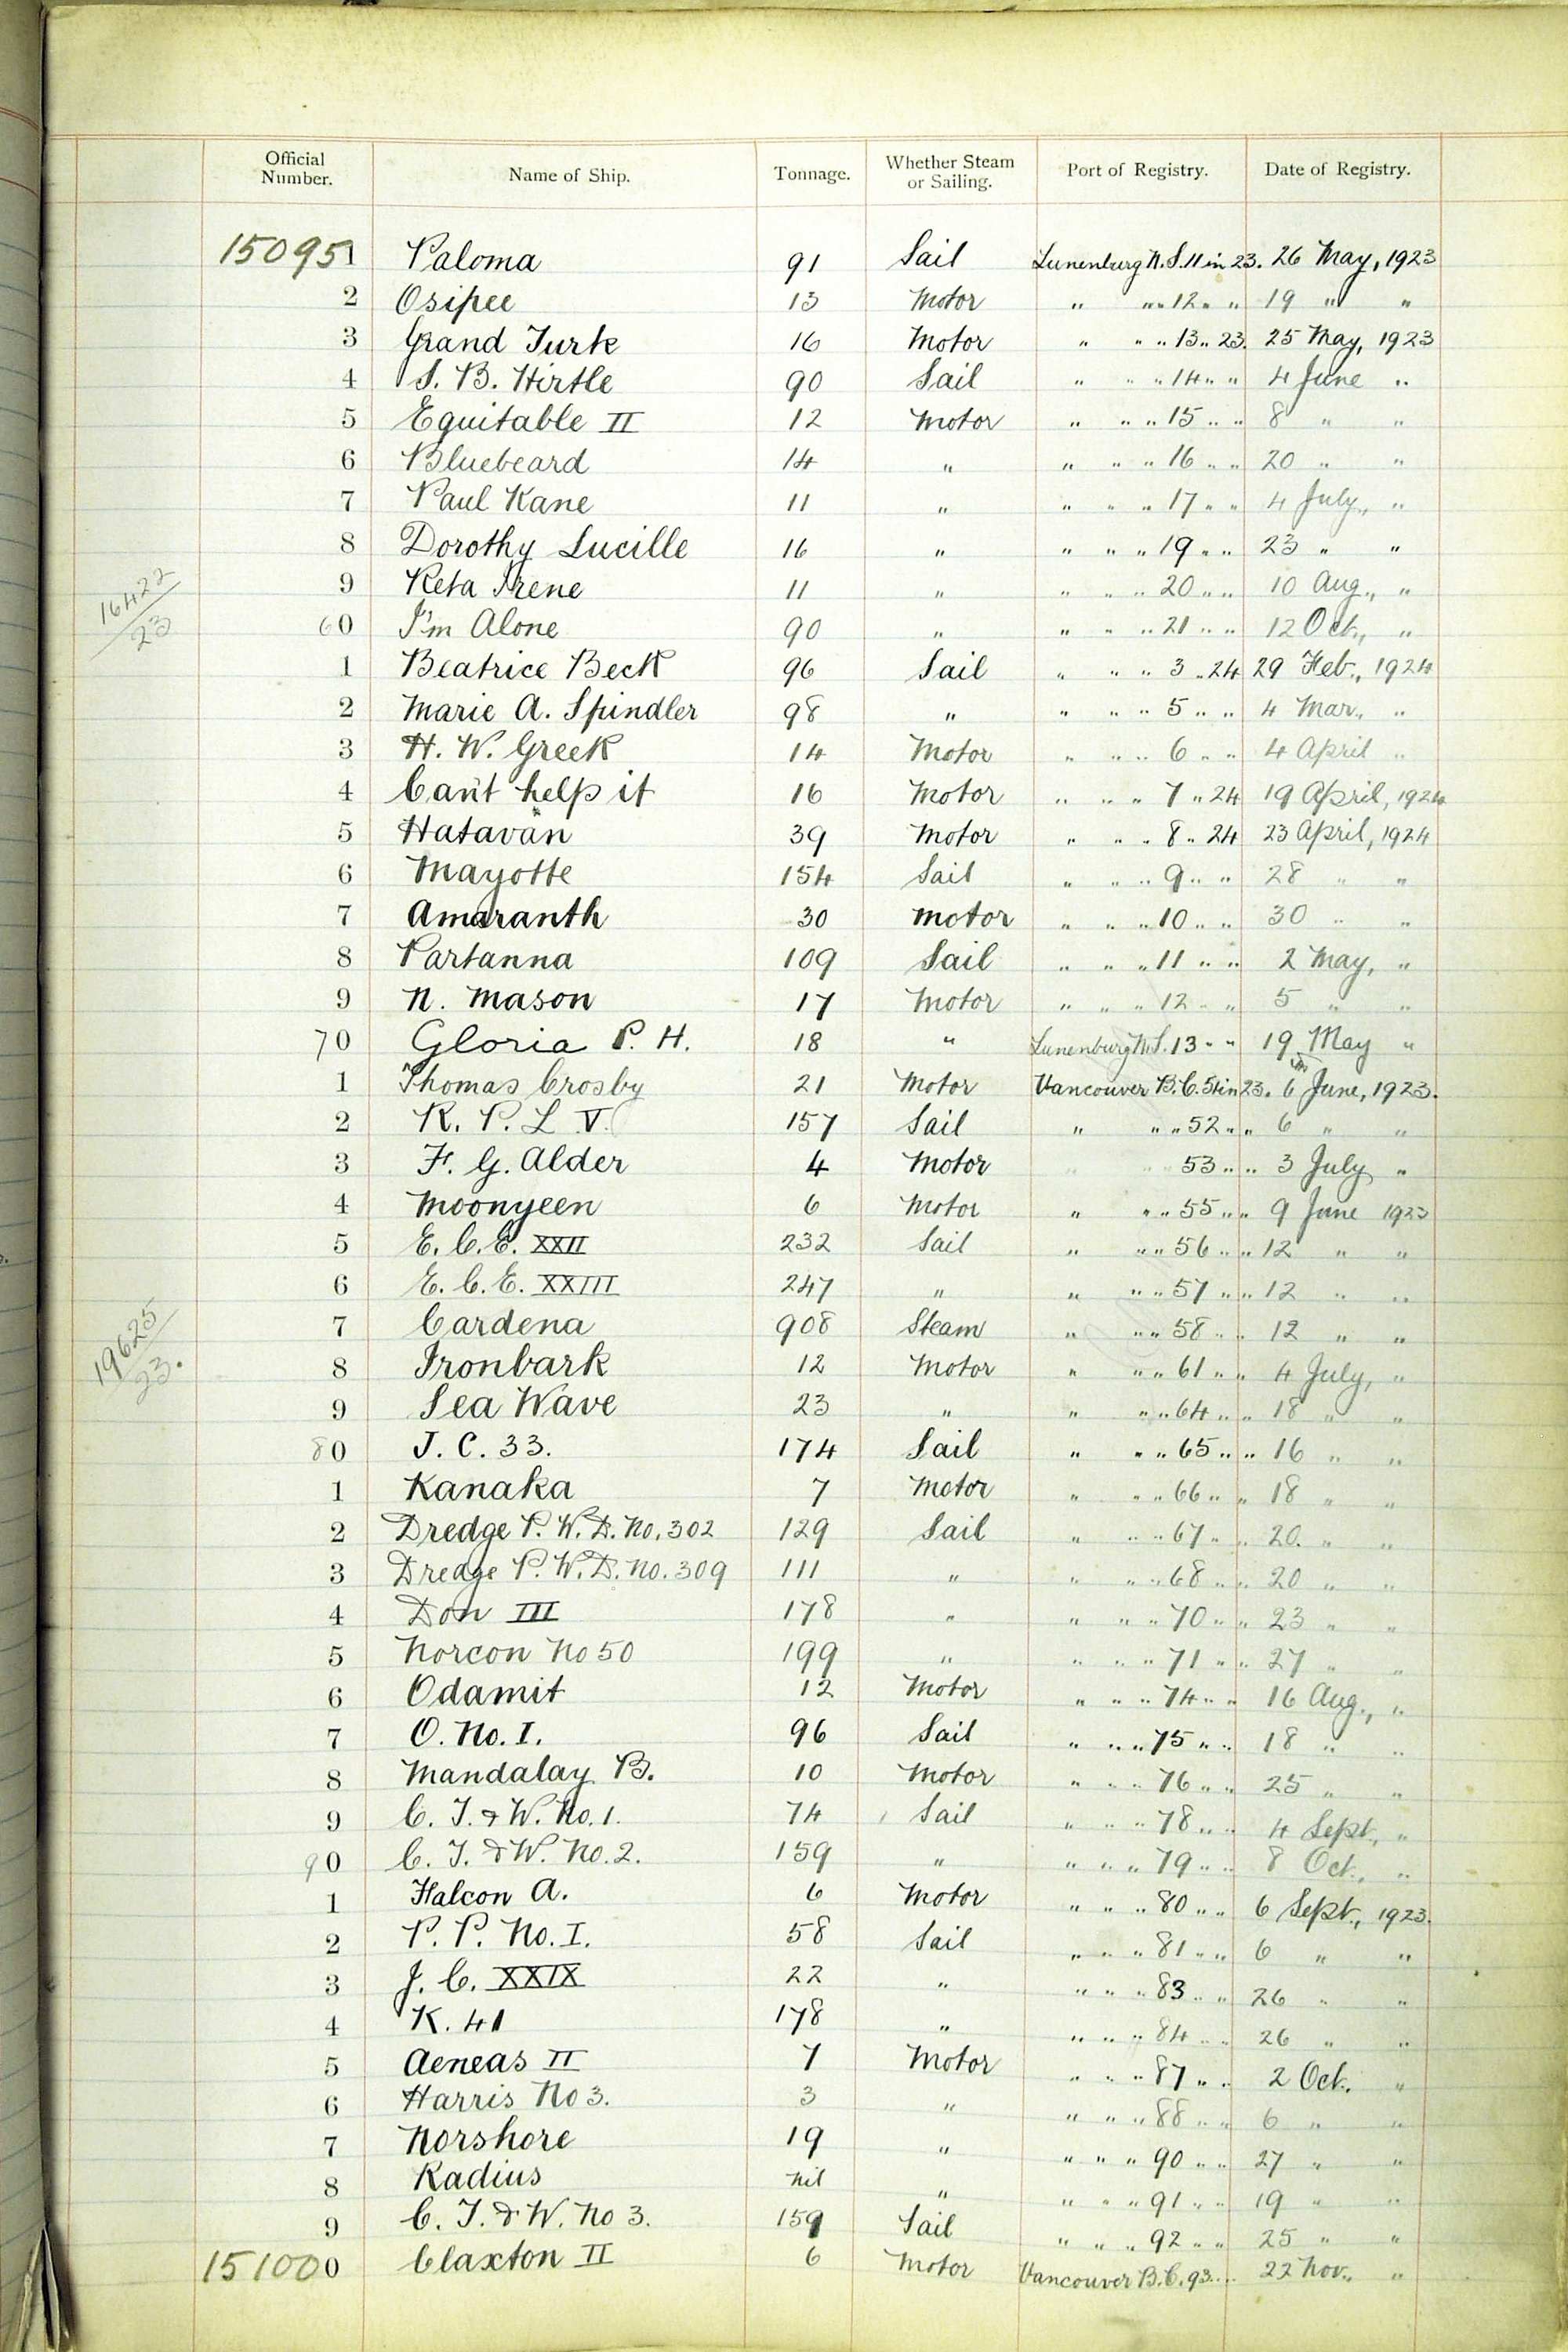 Official Number. Name of Ship. Tonnage. Whether Steam or Sailing. Port of Registry. Date of Registry.
150951 Paloma 91 Sail Lunenburg N.S. 11 in 23. 26 May, 1923
2 Osipee 13 Motor " " " 12 " " 19 " "
3 Grand Turk 16 Motor " " " 13 " 23. 25 May, 1923
4 S. B. Hirtle 90 Sail " " " 14 " " 4 June "
5 Equitable II 12 Motor " " " 15 " " 8 " "
6 Bluebeard 14 " " " " 16 " " 20 " "
7 Paul Kane 11 " " " " 17 " " 4 July, "
8 Dorothy Lucille 16 " " " " 19 " " 23 " "
16422/23
9 Reta Irene 11 " " " " 20 " " 10 Aug., "
60 I'm Alone 90 " " " " 21 " " 12 Oct., "
1 Beatrice Beck 96 Sail " " " 3 " 24 29 Feb., 1924
2 Marie A. Spindler 98 " " " " 5 " " 4 Mar., "
3 H. W. Greek 14 Motor " " " 6 " " 4 April "
4 Can't help it 16 Motor " " " 7 " 24 19 April, 1924
5 Hatavan 39 Motor " " " 8 " 24 23 April, 1924
6 Mayotte 154 Sail " " " 9 " " 28 " "
7 Amaranth 30 Motor " " " 10 " " 30 " "
8 Partanna 109 Sail " " " 11 " " 2 May, "
9 N. Mason 17 Motor " " " 12 " " 5 " "
70 Gloria P. H. 18 " Lunenburg N.S. 13 " " 19 May "
1 Thomas Crosby 21 Motor Vancouver B.C. 51 in 23. 6 June, 1923.
2 R. P. L V. 157 Sail " " " 52 " " 6 " "
3 F. G. Alder 4 Motor " " " 53 " " 3 July "
4 Moonyeen 6 Motor " " " 55 " " 9 June 1923
5 E. C. E. XXII 232 Sail " " " 56 " " 12 " "
6 E. C. E. XXIII 247 " " " " 57 " " 12 " "
7 Cardena 908 Steam " " " 58 " " 12 " "
19625/23.
8 Ironbark 12 Motor " " " 61 " " 4 July, "
9 Sea Wave 23 " " " " 64 " " 18 " "
80 J. C. 33. 174 Sail " " " 65 " " 16 " "
1 Kanaka 7 Motor " " " 66 " " 18 " "
2 Dredge P. W. D. No. 302 129 Sail " " " 67 " " 20. " "
3 Dredge P. W. D. No. 309 111 " " " " 68 " " 20 " "
4 Don III 178 " " " " 70 " " 23 " "
5 Norcon No 50 199 " " " " 71 " " 27 " "
6 Odamit 12 Motor " " " 74 " " 16 Aug., "
7 O. No. I. 96 Sail " " " 75 " " 18 " "
8 Mandalay B. 10 Motor " " " 76 " " 25 " "
9 C. T. & W. No. 1. 74 Sail " " " 78 " " 4 Sept., "
90 C. T. & W. No. 2. 159 " " " " 79 " " 8 Oct., "
1 Falcon A. 6 Motor " " " 80 " " 6 Sept., 1923.
2 P. P. No. I. 58 Sail " " " 81 " " 6 " "
3 J. C. XXIX 22 " " " " 83 " " 26 " "
4 K. 41 178 " " " " 84 " " 26 " "
5 Aeneas II 7 Motor " " " 87 " " 2 Oct. "
6 Harris No 3. 3 " " " " 88 " " 6 " "
7 Norshore 19 " " " " 90 " " 27 " "
8 Radius nil " " " " 91 " " 19 " "
9 C. T. & W. No 3. 159 Sail " " " 92 " " 25 " "
151000 Claxton II 6 Motor Vancouver B.C. 93 " " 22 Nov., "